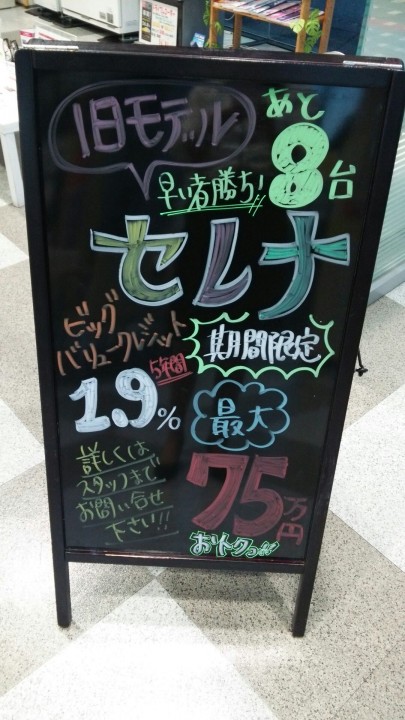 旧モデル
あと
8台
早い者勝ち!!
セレナ
ビッグ
バリュークレジット
5年間
1.9%
期間限定
最大
75万円
おトクっ!!
詳しくは
スタッフまで
お問い合せ
下さい!!